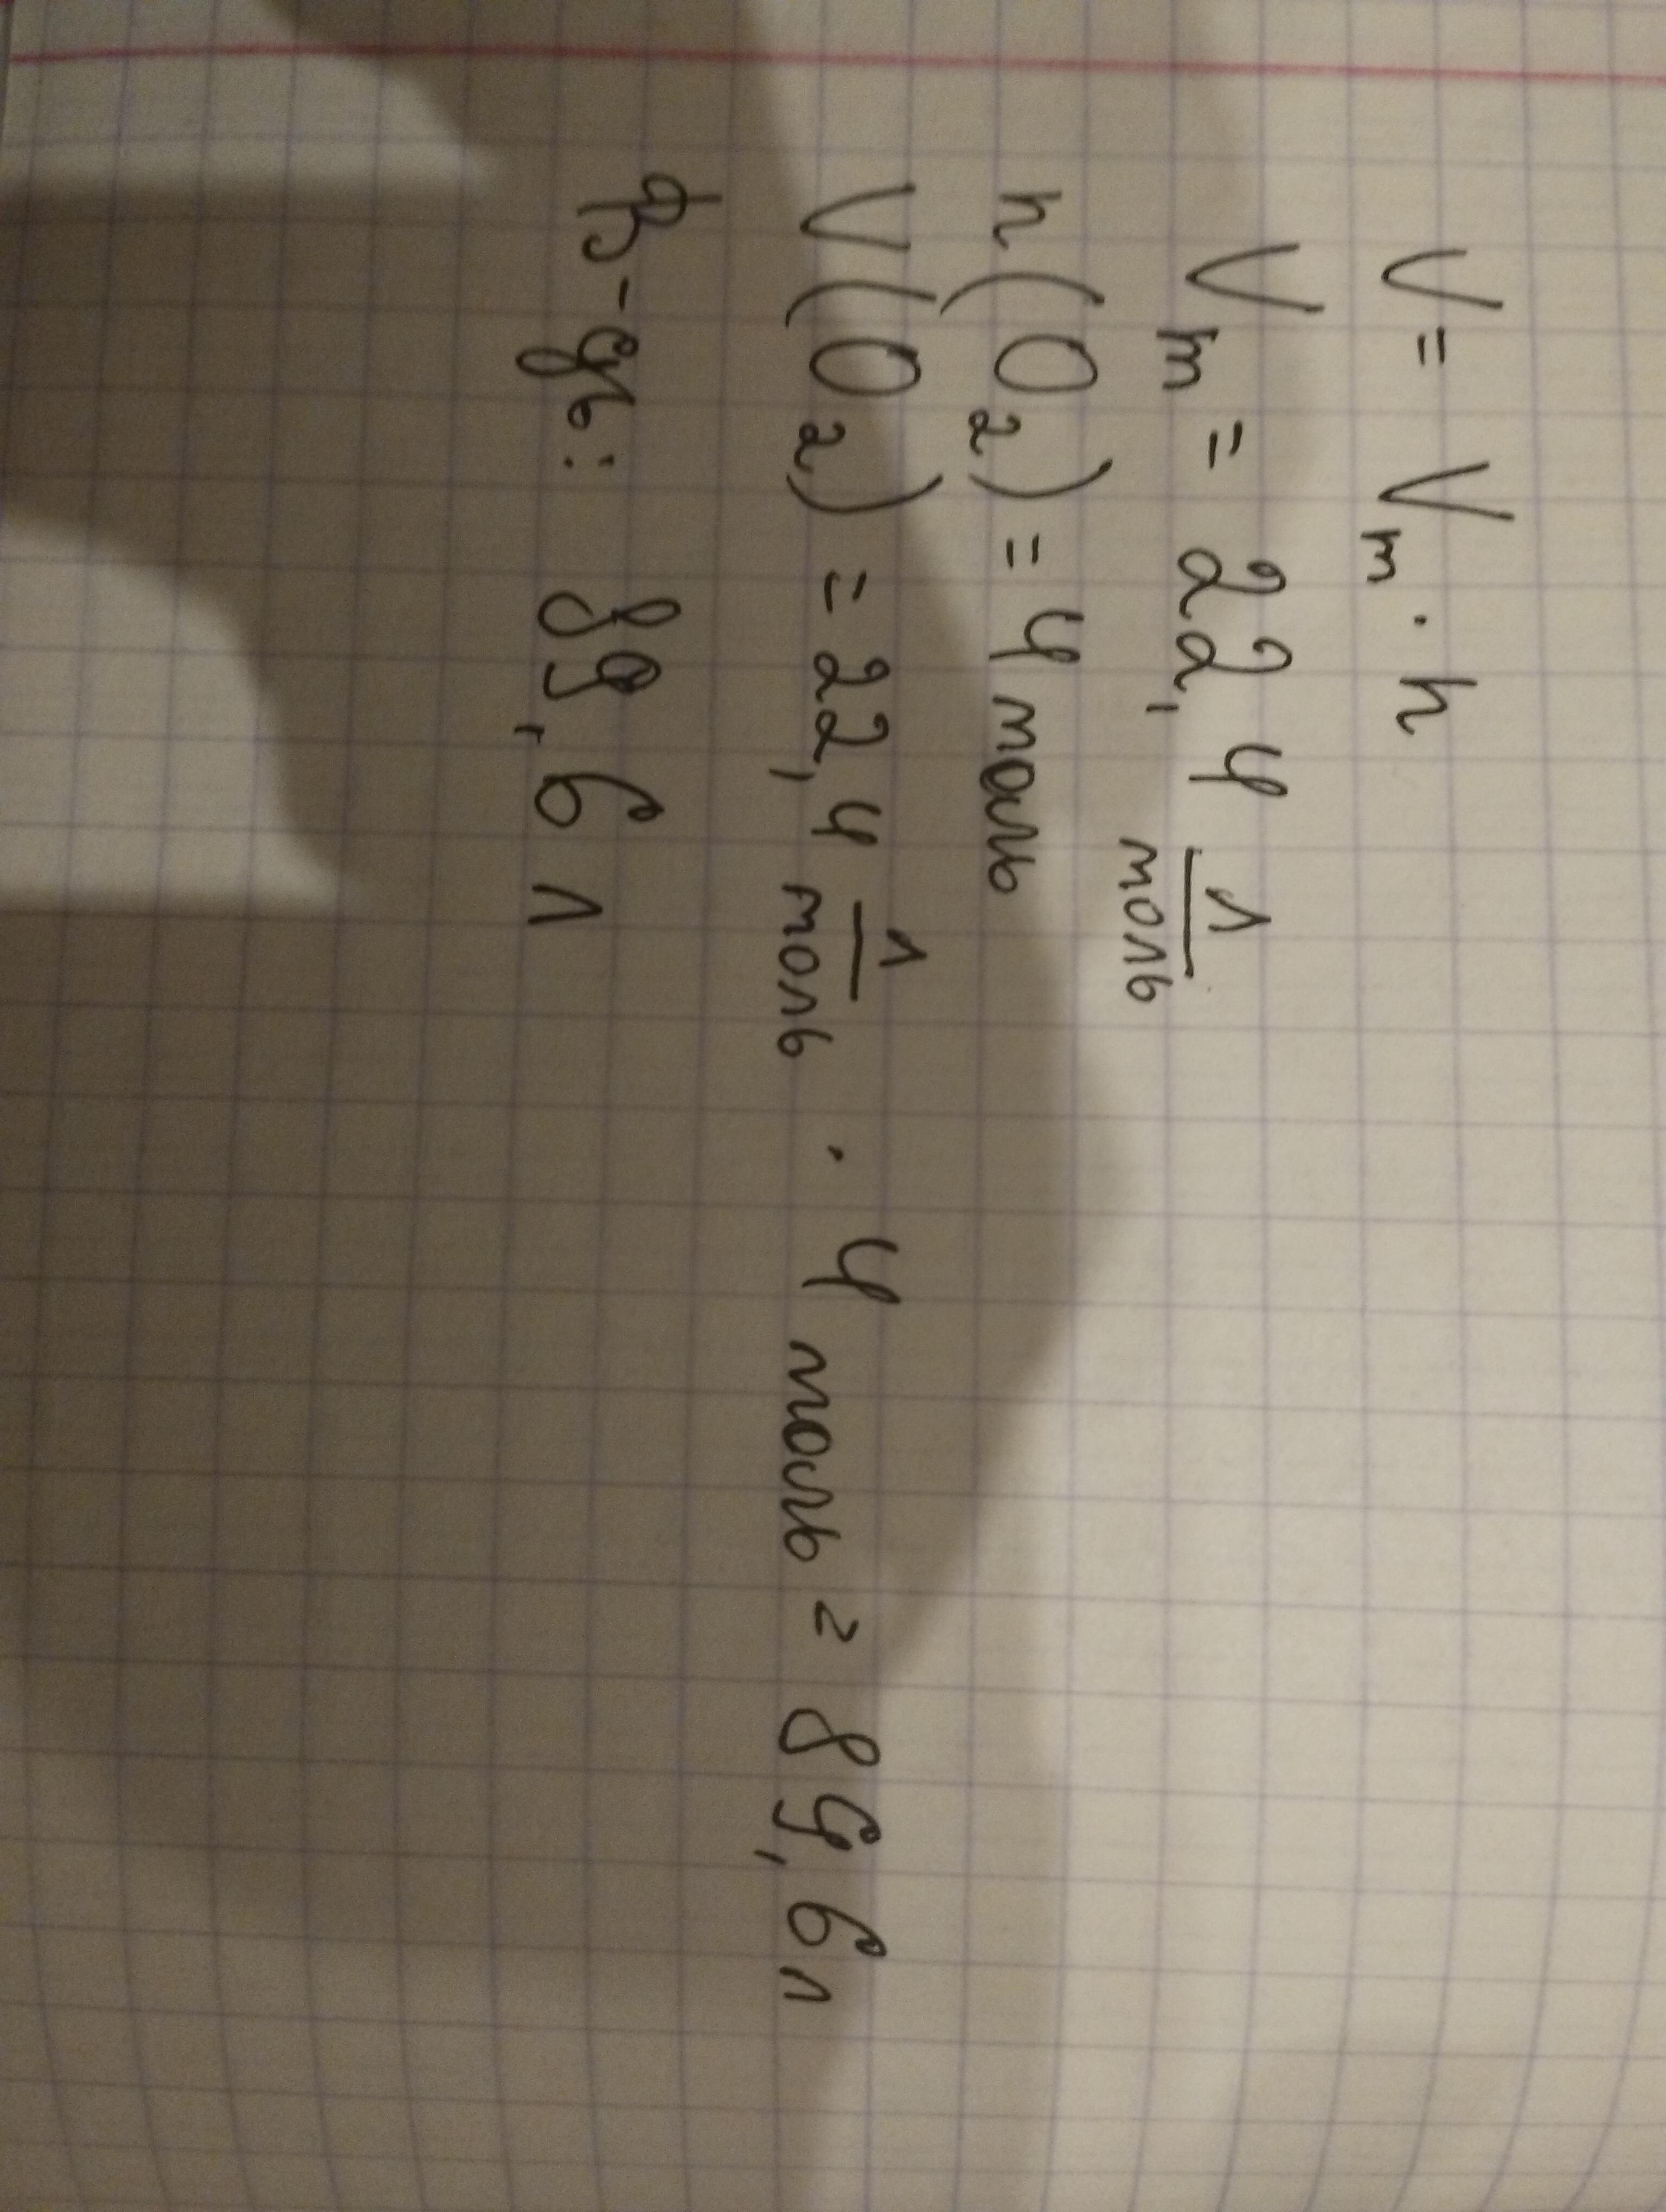 V = Vm · n
Vm = 22,4 л/моль
n(O2) = 4 моль
V(O2) = 22,4 л/моль · 4 моль = 89,6 л
В-дь: 89,6 л